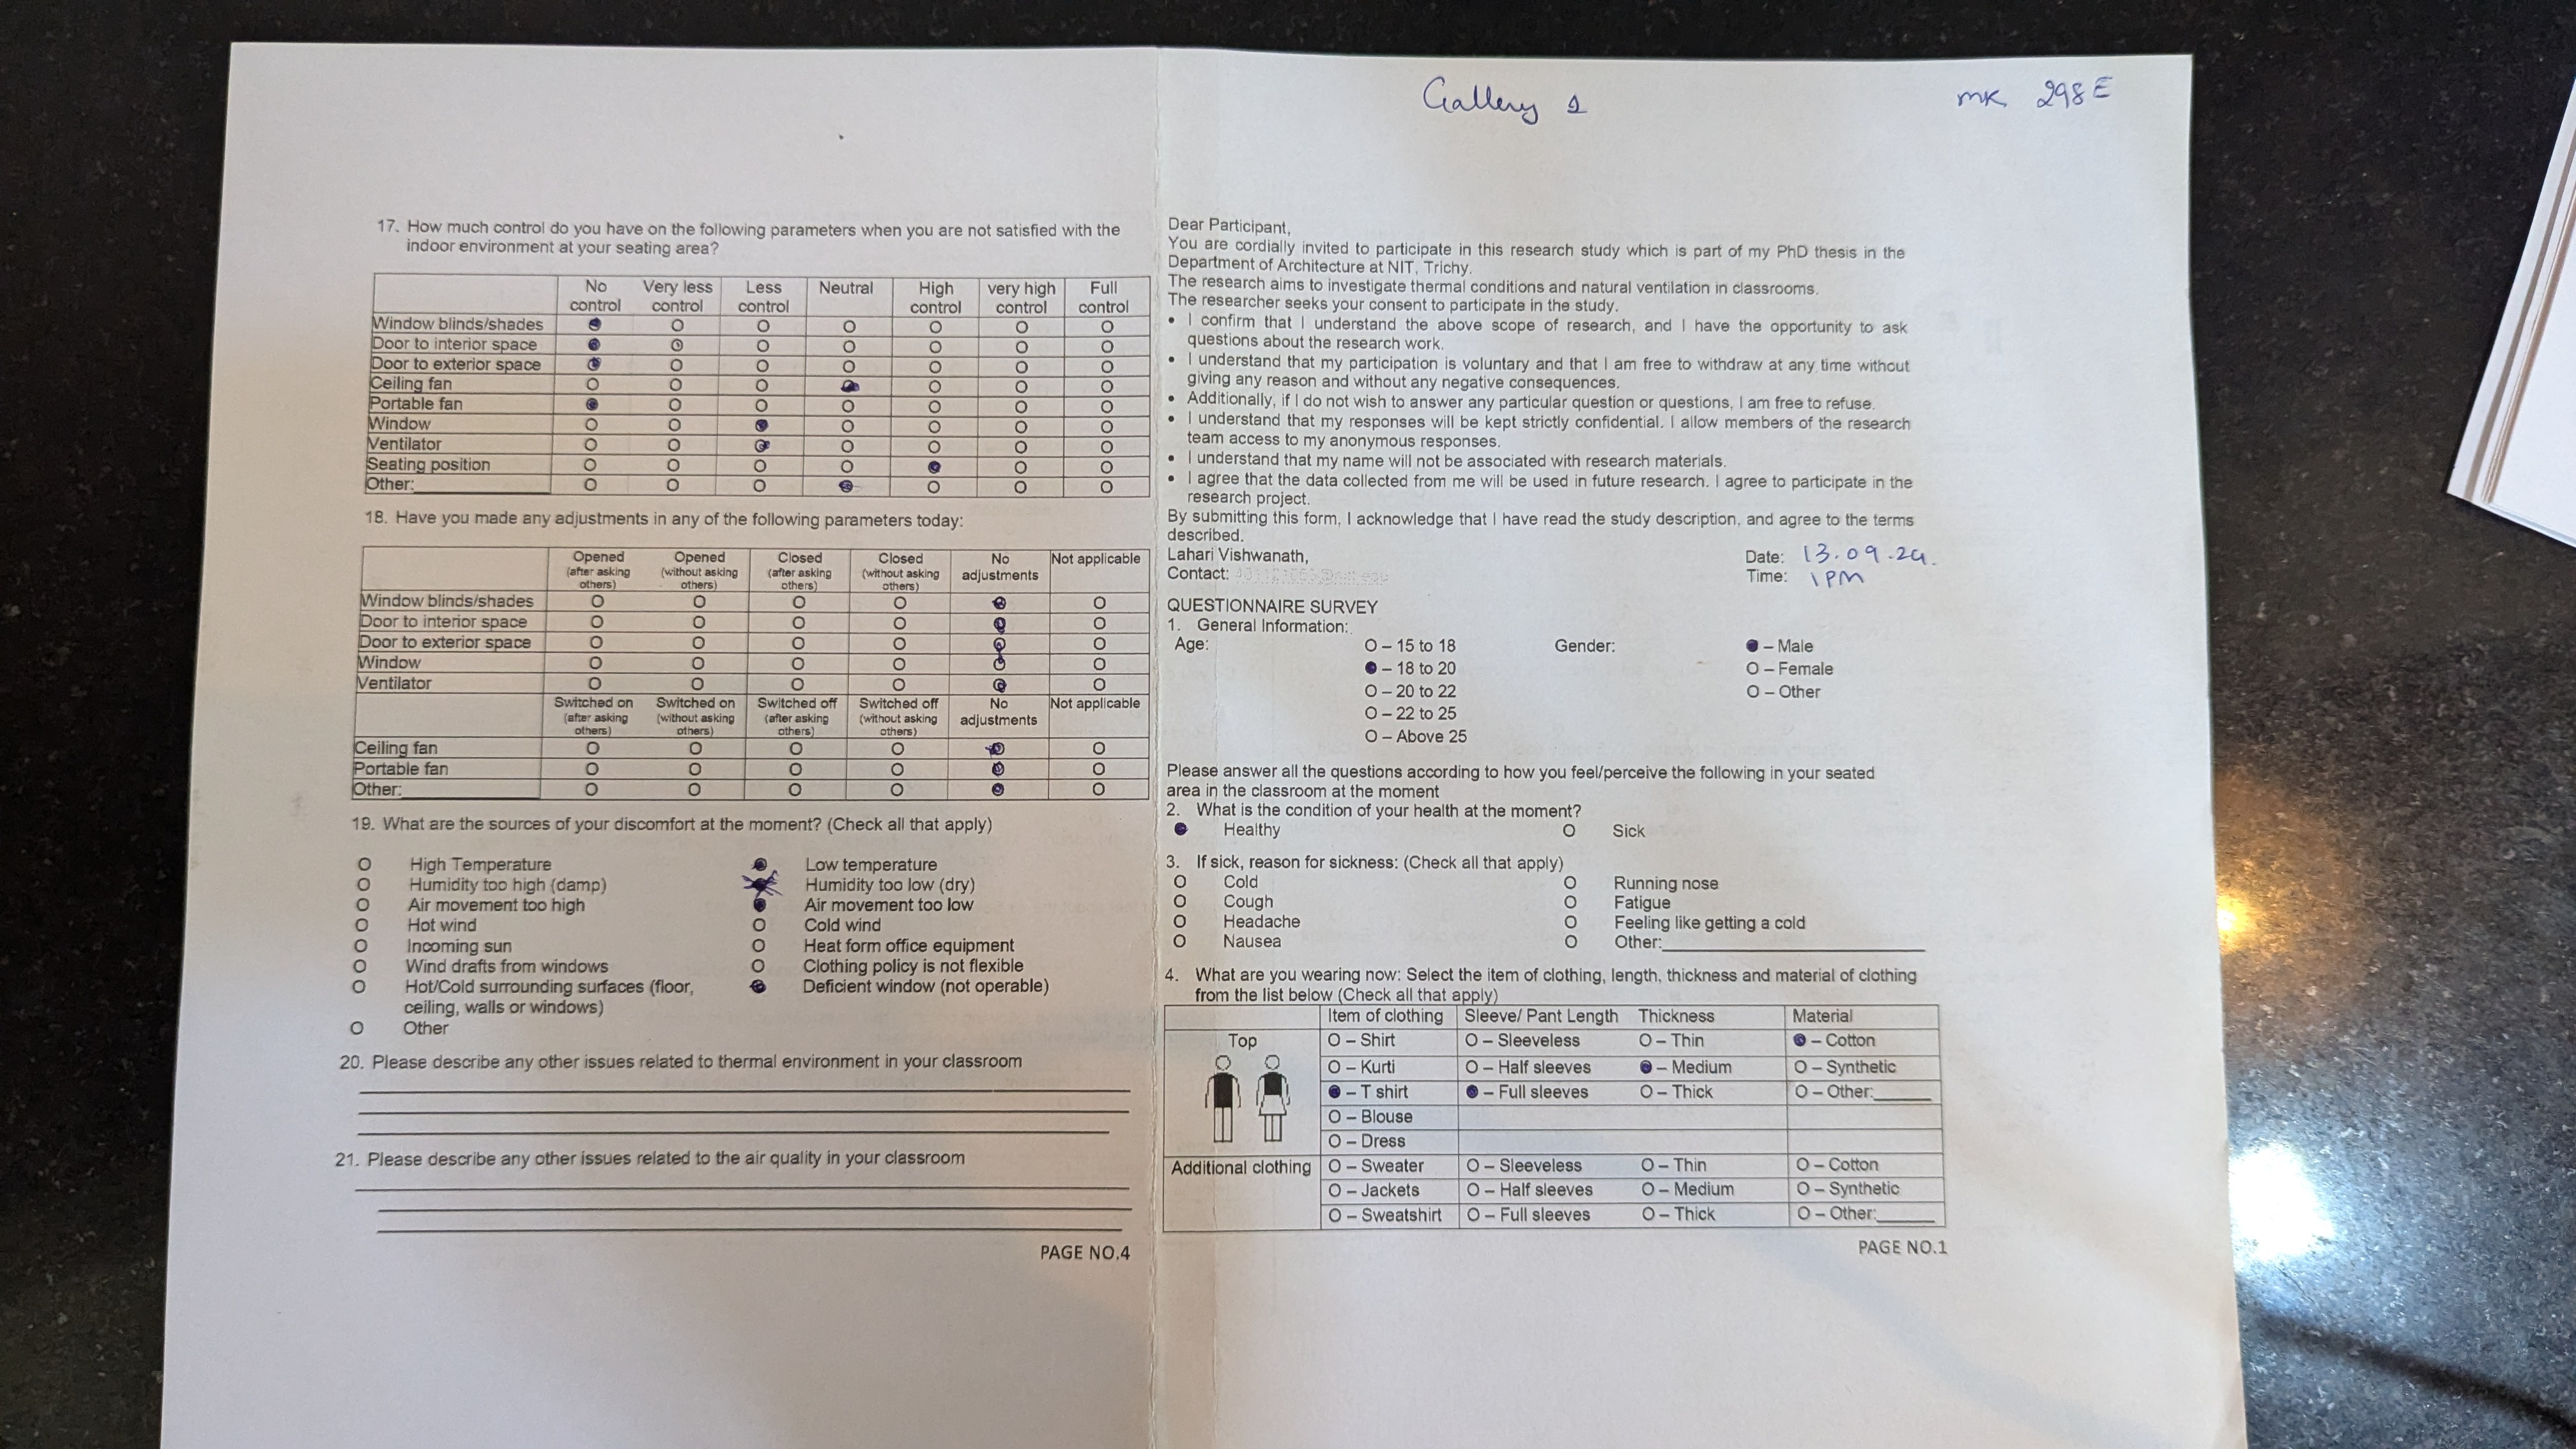 Gallery 1
MK 298E
17. How much control do you have on the following parameters when you are not satisfied with the
indoor environment at your seating area?
No control | Very less control | Less control | Neutral | High control | very high control | Full control
Window blinds/shades
Door to interior space
Door to exterior space
Ceiling fan
Portable fan
Window
Ventilator
Seating position
Other:
18. Have you made any adjustments in any of the following parameters today:
Opened (after asking others) | Opened (without asking others) | Closed (after asking others) | Closed (without asking others) | No adjustments | Not applicable
Window blinds/shades
Door to interior space
Door to exterior space
Window
Ventilator
Switched on (after asking others) | Switched on (without asking others) | Switched off (after asking others) | Switched off (without asking others) | No adjustments | Not applicable
Ceiling fan
Portable fan
Other:
19. What are the sources of your discomfort at the moment? (Check all that apply)
O High Temperature Low temperature
O Humidity too high (damp) Humidity too low (dry)
O Air movement too high Air movement too low
O Hot wind O Cold wind
O Incoming sun O Heat form office equipment
O Wind drafts from windows O Clothing policy is not flexible
O Hot/Cold surrounding surfaces (floor, Deficient window (not operable)
ceiling, walls or windows)
O Other
20. Please describe any other issues related to thermal environment in your classroom
21. Please describe any other issues related to the air quality in your classroom
PAGE NO.4
Dear Participant,
You are cordially invited to participate in this research study which is part of my PhD thesis in the
Department of Architecture at NIT, Trichy.
The research aims to investigate thermal conditions and natural ventilation in classrooms.
The researcher seeks your consent to participate in the study.
• I confirm that I understand the above scope of research, and I have the opportunity to ask
questions about the research work.
• I understand that my participation is voluntary and that I am free to withdraw at any time without
giving any reason and without any negative consequences.
• Additionally, if I do not wish to answer any particular question or questions, I am free to refuse.
• I understand that my responses will be kept strictly confidential. I allow members of the research
team access to my anonymous responses.
• I understand that my name will not be associated with research materials.
• I agree that the data collected from me will be used in future research. I agree to participate in the
research project.
By submitting this form, I acknowledge that I have read the study description, and agree to the terms
described.
Lahari Vishwanath,
Contact:
Date: 13.09.24.
Time: 1PM
QUESTIONNAIRE SURVEY
1. General Information:
Age: O – 15 to 18 Gender: – Male
– 18 to 20 O – Female
O – 20 to 22 O – Other
O – 22 to 25
O – Above 25
Please answer all the questions according to how you feel/perceive the following in your seated
area in the classroom at the moment
2. What is the condition of your health at the moment?
Healthy O Sick
3. If sick, reason for sickness: (Check all that apply)
O Cold O Running nose
O Cough O Fatigue
O Headache O Feeling like getting a cold
O Nausea O Other:
4. What are you wearing now: Select the item of clothing, length, thickness and material of clothing
from the list below (Check all that apply)
Item of clothing | Sleeve/ Pant Length | Thickness | Material
Top | O – Shirt | O – Sleeveless | O – Thin | – Cotton
O – Kurti | O – Half sleeves | – Medium | O – Synthetic
– T shirt | – Full sleeves | O – Thick | O – Other:
O – Blouse
O – Dress
Additional clothing | O – Sweater | O – Sleeveless | O – Thin | O – Cotton
O – Jackets | O – Half sleeves | O – Medium | O – Synthetic
O – Sweatshirt | O – Full sleeves | O – Thick | O – Other:
PAGE NO.1